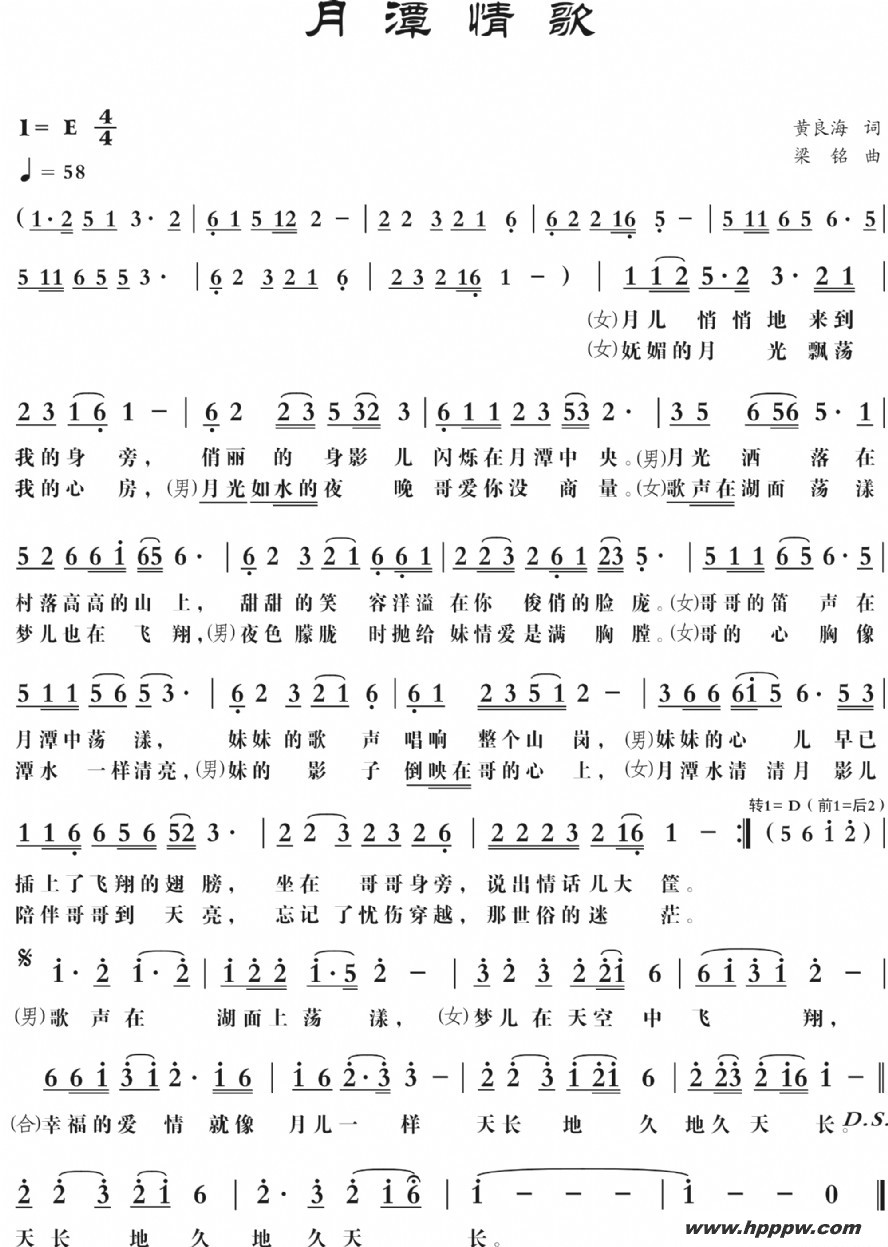 月潭情歌
1= E 4/4
黄良海 词
♩= 58
梁 铭 曲
(1·2 5 1 3· 2 | 6 1 5 12 2 － | 2 2 3 2 1 6 | 6 2 2 16 5 － | 5 11 6 5 6· 5 |
5 11 6 5 5 3· | 6 2 3 2 1 6 | 2 3 2 16 1 － ) | 1 1 2 5·2 3· 2 1 |
(女)月儿 悄悄地 来到
(女)妩媚的月 光飘荡
2 3 1 6 1 － | 6 2 2 3 5 32 3 | 6 1 1 2 3 53 2· | 3 5 6 56 5· 1 |
我的身 旁， 俏丽 的 身影 儿 闪烁在月潭中 央。(男)月光 洒 落在
我的心 房，(男)月光如水的夜 晚 哥爱你没 商量。(女)歌声在湖面 荡漾
5 2 6 6 1 65 6· | 6 2 3 2 1 6 6 1 | 2 2 3 2 6 1 23 5· | 5 1 1 6 5 6· 5 |
村落高高的山 上， 甜甜 的笑 容洋溢 在你 俊俏的脸 庞。(女)哥哥的笛 声在
梦儿也在 飞翔，(男)夜色 朦胧 时抛给 妹情爱是满 胸膛。(女)哥的 心 胸像
5 1 1 5 6 5 3· | 6 2 3 2 1 6 | 6 1 2 3 5 1 2 － | 3 6 6 61 5 6· 5 3 |
月潭中荡 漾， 妹妹 的歌 声 唱响 整个山 岗，(男)妹妹的心 儿 早已
潭水 一样清亮，(男)妹的 影 子 倒映在哥的心 上，(女)月潭水清 清月 影儿
转1= D（前1=后2）
1 1 6 6 5 6 52 3· | 2 2 3 2 3 2 6 | 2 2 2 3 2 16 1 － :‖ (5 6 1 2) |
插上了飞翔的翅 膀， 坐在 哥哥身旁，说出情话儿大 筐。
陪伴哥哥到 天亮， 忘记 了忧伤穿越，那世俗的迷 茫。
𝄋 1· 2 1· 2 | 1 2 2 1·5 2 － | 3 2 3 2 21 6 | 6 1 3 1 2 － |
(男)歌 声在 湖面上荡 漾，(女)梦儿在天空 中飞 翔，
6 6 1 3 1 2· 1 6 | 1 6 2·3 3 － | 2 2 3 1 21 6 | 2 23 2 16 1 － ‖
(合)幸福的爱 情 就像 月儿一 样 天长 地 久 地久 天 长。D.S.
2 2 3 2 1 6 | 2· 3 2 1 6 | 1 － － － | 1 － － 0 ‖
天长 地 久 地 久天 长。
www.hpppw.com